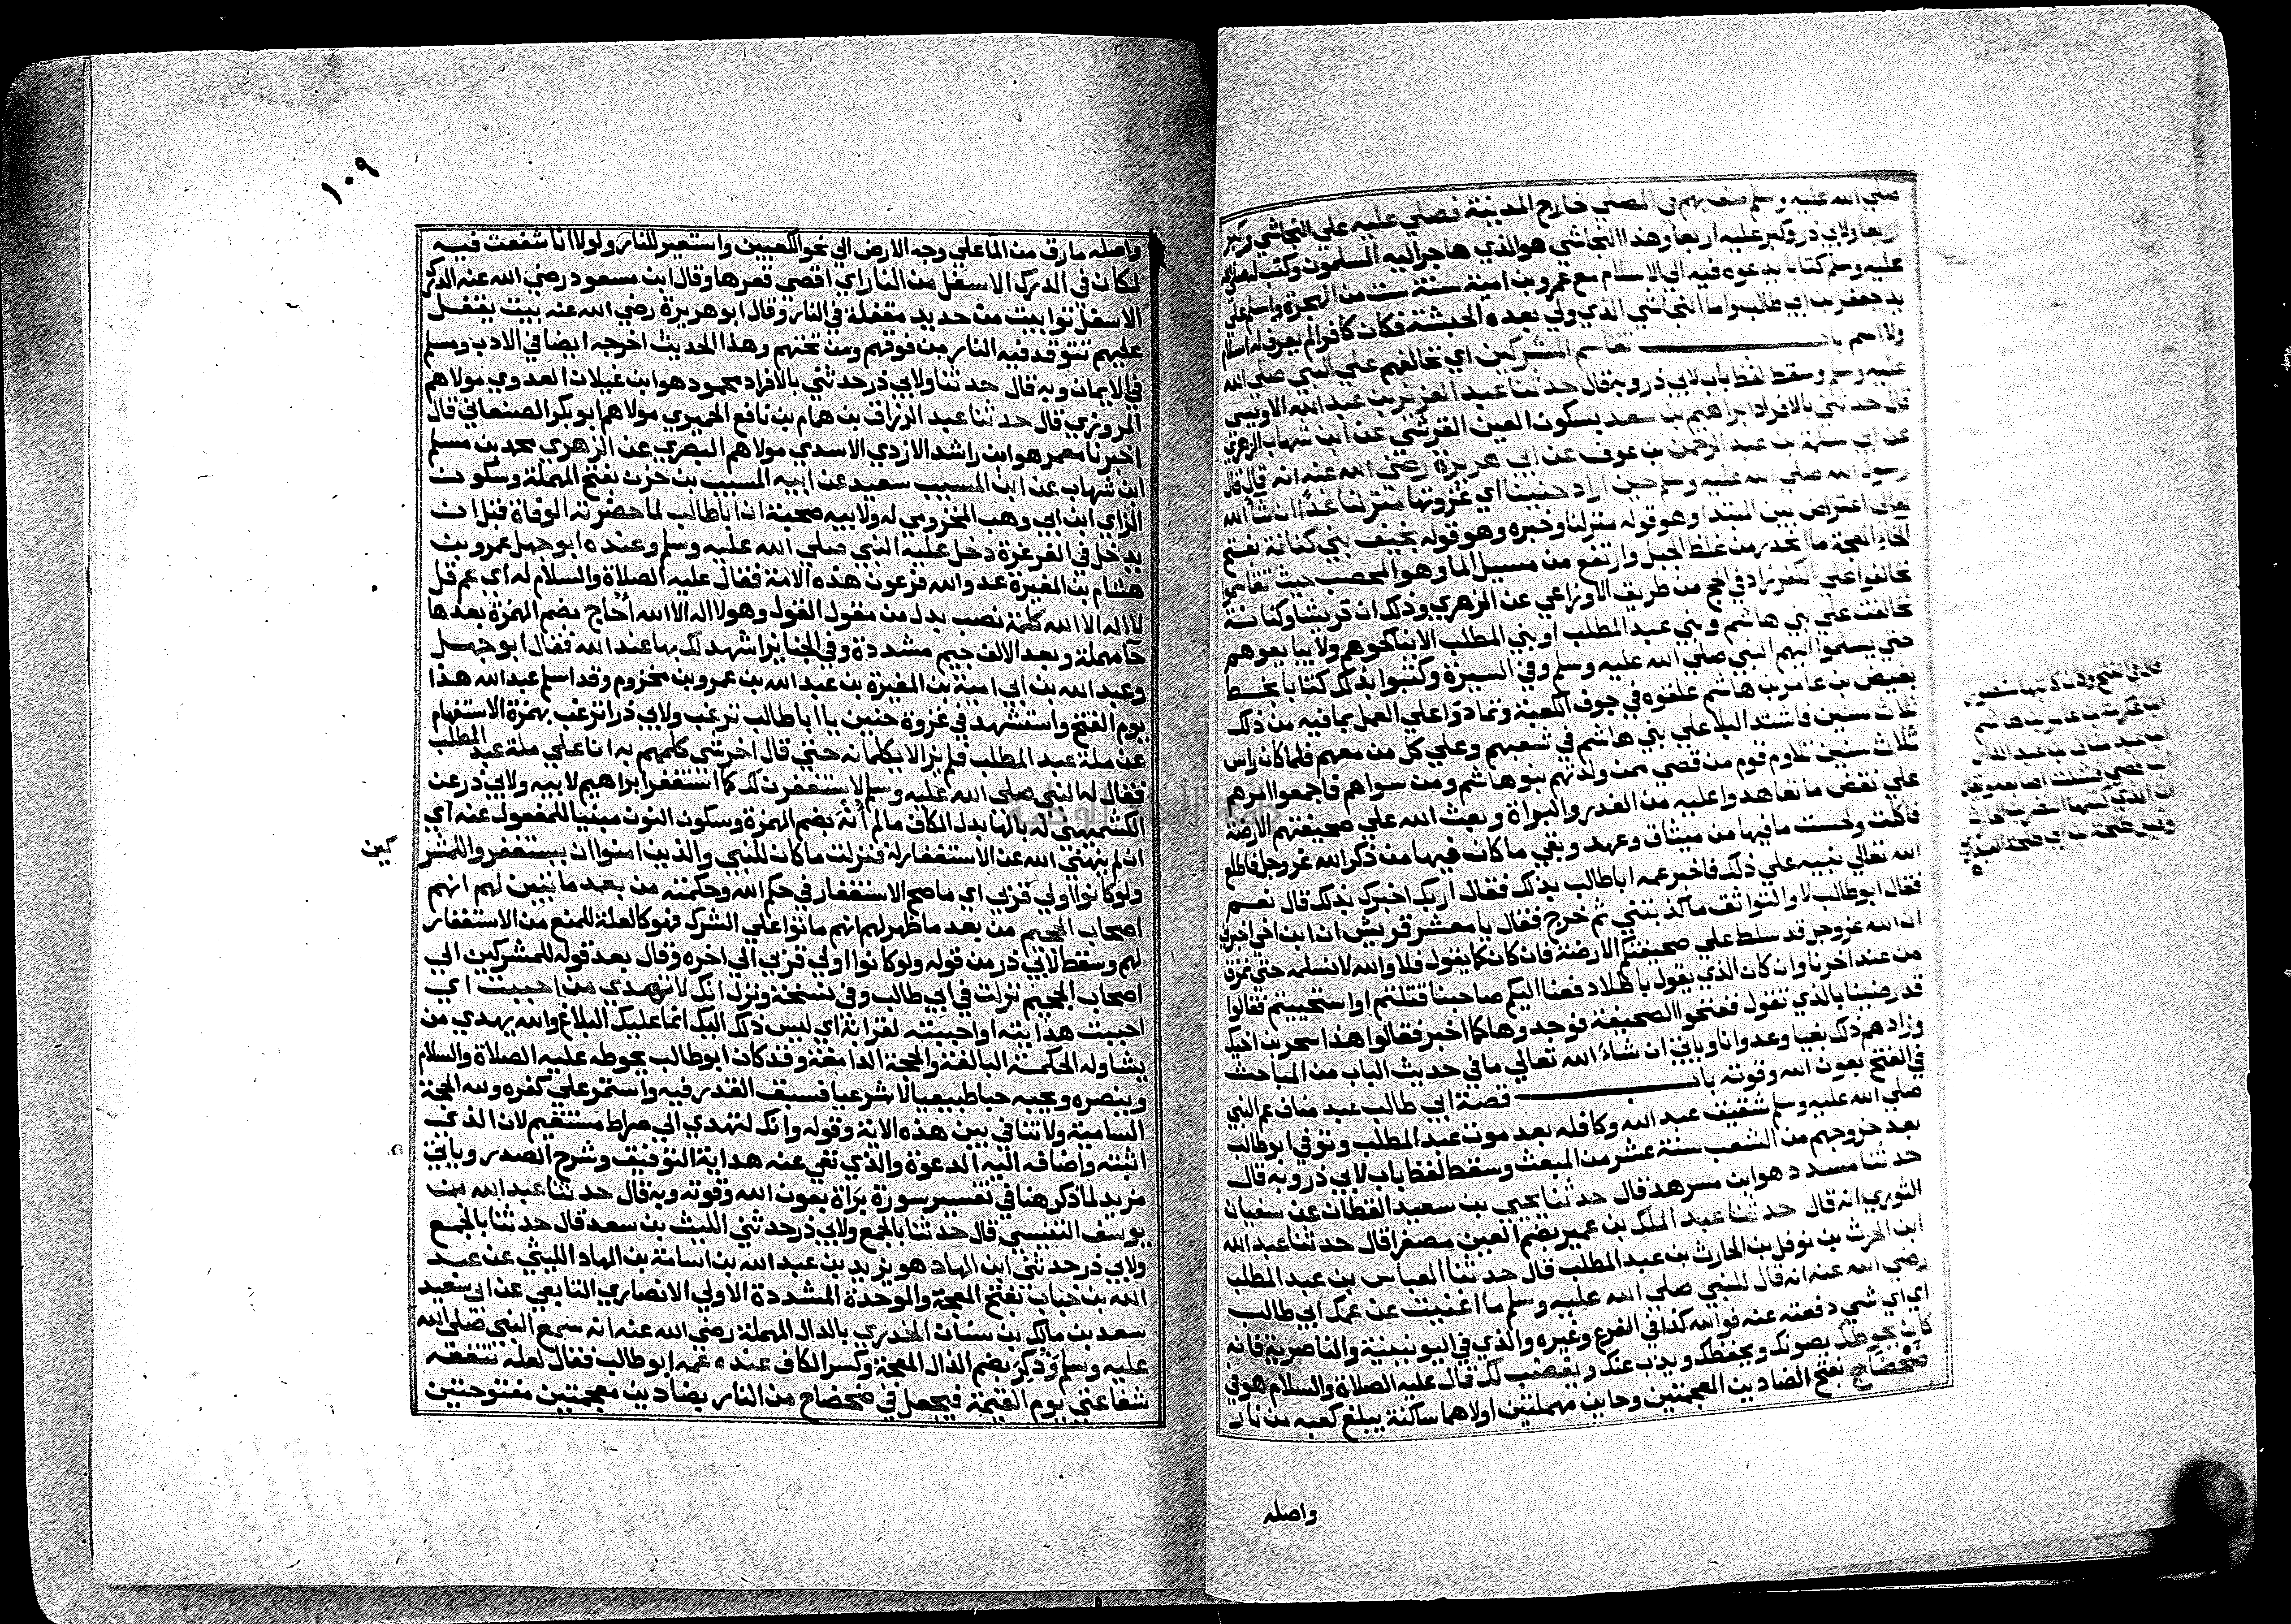 صلي الله عليه وسلم صف بهم في المصلي خارج المدينة فصلي عليه علي النجاشي وكبر
اربعا ولابي ذر وكبر عليه اربعا وهذا النجاشي هو الذي هاجر اليه المسلمون وكتب له صلي الله
عليه وسلم كتابا يدعوه فيه الي الاسلام مع عمرو بن امية سنة ست من الهجرة واسلم علي
يد جعفر بن ابي طالب واما النجاشي الذي ولي بعده الحبشة فكان كافرا لم يعرف له اسلام
ولا اسم باب تقاسم المشركين اي تحالفهم علي النبي صلي الله
عليه وسلم وسقط لفظ باب لابي ذر وبه قال حدثنا عبد العزيز بن عبد الله الاويسي
قال حدثني بالافراد ابراهيم بن سعد بسكون العين القرشي عن ابن شهاب الزهري
عن ابي سلمة بن عبد الرحمن بن عوف عن ابي هريرة رضي الله عنه انه قال قال
رسول الله صلي الله عليه وسلم حين اراد حنينا اي غزوتها منزلنا غدا ان شا الله
تعالي اعتراض بين المبتدا وهو قوله منزلنا وخبره وهو قوله بخيف بني كنانة بفتح
الخاء المعجمة ما انحدر من غلظ الجبل وارتفع من مسيل الما وهو المحصب حيث تقاسموا
تحالفوا علي الكفر زاد في الحج من طريق الاوزاعي عن الزهري وذلك ان قريشا وكنانة
تحالفت علي بني هاشم وبني عبد المطلب او بني المطلب الا يناكحوهم ولا يبايعوهم
حتي يسلموا اليهم النبي صلي الله عليه وسلم وفي السيرة وكتبوا بذلك كتابا بخط
بغيض بن عامر بن هاشم علقوه في جوف الكعبة وتمادوا علي العمل بما فيه من ذلك
ثلاث سنين فاشتد البلا علي بني هاشم في شعبهم وعلي كل من معهم فلما كان راس
ثلاث سنين تلاوم قوم من قصي ممن ولدتهم بنو هاشم ومن سواهم فاجمعوا امرهم
علي نقض ما تعاهدوا عليه من الغدر والبراة وبعث الله علي صحيفتهم الارضة
فاكلت ولحست ما فيها من ميثاق وعهد وبقي ما كان فيها من ذكر الله عز وجل فاطلع
الله تعالي نبيه علي ذلك فاخبر عمه ابا طالب بذلك فقال اربك اخبرك بذلك قال نعم
فقال ابو طالب لا والثواقب ما كذبتني ثم خرج فقال يا معشر قريش ان ابن اخي اخبرني
ان الله عز وجل قد سلط علي صحيفتكم الارضة فان كان كما يقول فلا والله لا نسلمه حتي نموت
من عند اخرنا وان كان الذي يقول باطلا دفعنا اليكم صاحبنا قتلتم او استحييتم فقالوا
قد رضينا بالذي تقول ففتحوا الصحيفة فوجدوها كما اخبر فقالوا هذا سحر بن اخيك
وزادهم ذلك بغيا وعدوانا وياتي ان شاء الله تعالي ما في حديث الباب من المباحث
في الفتح بعون الله وقوته باب قصة ابي طالب عبد مناف عم النبي
صلي الله عليه وسلم شقيق عبد الله وكافله بعد موت عبد المطلب وتوفي ابو طالب
بعد خروجهم من الشعب سنة عشر من المبعث وسقط لفظ باب لابي ذر وبه قال
حدثنا مسدد هو ابن مسرهد قال حدثنا يحيي بن سعيد القطان عن سفيان
الثوري انه قال حدثنا عبد الملك بن عمير بضم العين مصغرا قال حدثنا عبد الله
ابن الحرث بن نوفل بن الحارث بن عبد المطلب قال حدثنا العباس بن عبد المطلب
رضي الله عنه انه قال للنبي صلي الله عليه وسلم ما اغنيت عن عمك ابي طالب
اي اي شي دفعته عنه فوالله كذا في الفرع وغيره والذي في اليونينية والناصرية فانه
كان يحوطك يصونك ويحفظك ويذب عنك ويغضب لك قال عليه الصلاة والسلام هو في
ضحضاح بفتح الضادين المعجمتين وحاين مهملتين اولاهما ساكنة يبلغ كعبه من نار
واصله
قال في الفتح وكان كاتبها منصور
ابن عكرمة بن عامر بن هاشم
ابن عبد مناف بن عبد الدار
ابن قصي فشلت اصابعه وقيل
ان الذي كتبها النضر بن الحرث
وقيل طلحة بن ابي طلحة العبدري
١٠٩
واصله مارق من الما علي وجه الارض الي نحو الكعبين واستعير للنار ولولا انا شفعت فيه
لكان في الدرك الاسفل من النار اي اقصي قعرها وقال ابن مسعود رضي الله عنه الدرك
الاسفل توابيت من حديد مقفلة في النار وقال ابو هريرة رضي الله عنه بيت يقفل
عليهم تتوقد فيه النار من فوقهم ومن تحتهم وهذا الحديث اخرجه ايضا في الادب ومسلم
في الايمان وبه قال حدثنا ولابي ذر حدثني بالافراد محمود هو ابن غيلان العدوي مولاهم
المروزي قال حدثنا عبد الرزاق بن همام بن نافع الحميري مولاهم ابو بكر الصنعاني قال
اخبرنا معمر هو ابن راشد الازدي الاسدي مولاهم البصري عن الزهري محمد بن مسلم
ابن شهاب عن ابن المسيب سعيد عن ابيه المسيب بن حزن بفتح المهملة وسكون
الزاي ابن ابي وهب المخزومي له ولابيه صحبة ان ابا طالب لما حضرته الوفاة قبل ان
يدخل في الغرغرة دخل عليه النبي صلي الله عليه وسلم وعنده ابو جهل عمرو بن
هشام بن المغيرة عدو الله فرعون هذه الامة فقال عليه الصلاة والسلام له اي عم قل
لا اله الا الله كلمة نصب بدل من مقول القول وهو لا اله الا الله أحاج بضم الهمزة بعدها
حا مهملة وبعد الالف جيم مشددة وفي الجنايز اشهد لك بها عند الله فقال ابو جهل
وعبد الله بن ابي امية بن المغيرة بن عبد الله بن عمرو بن مخزوم وقد اسلم عبد الله هذا
يوم الفتح واستشهد في غزوة حنين يا ابا طالب ترغب ولابي ذر اترغب بهمزة الاستفهام
عن ملة عبد المطلب فلم يزالا يكلمانه حتي قال اخر شي كلمهم به انا علي ملة عبد المطلب
فقال له النبي صلي الله عليه وسلم لاستغفرن لك كما استغفر ابراهيم لابيه ولابي ذر عن
الكشميهني له بالها بدل الكاف ما لم أُنه بضم الهمزة وسكون النون مبنيا للمفعول عنه اي
ان لم ينهني الله عن الاستغفار له فنزلت ما كان للنبي والذين امنوا ان يستغفروا للمشر
كين
ولو كانوا اولي قربي اي ما صح الاستغفار في حكم الله وحكمته من بعد ما تبين لهم انهم
اصحاب الجحيم من بعد ما ظهر لهم انهم ماتوا علي الشرك فهو كالعلة للمنع من الاستغفار
لهم وسقط لابي ذر من قوله ولو كانوا اولي قربي الي اخره وقال بعد قوله للمشركين الي
اصحاب الجحيم نزلت في ابي طالب وفي نسخة ونزل انك لا تهدي من احببت اي
احببت هدايته او احببته لقرابته اي ليس ذلك اليك انما عليك البلاغ والله يهدي من
يشا وله الحكمة البالغة والحجة الدامغة وقد كان ابو طالب يحوطه عليه الصلاة والسلام
وينصره ويحبه حبا طبيعيا لا شرعيا فسبق القدر فيه واستمر علي كفره ولله الحجة
السامية ولا تنافي بين هذه الاية وقوله وانك لتهدي الي صراط مستقيم لان الذي
اثبته واضافه اليه الدعوة والذي نفي عنه هداية التوفيق وشرح الصدر وياتي
مزيد لما ذكر هنا في تفسير سورة براة بعون الله وقوته وبه قال حدثنا عبد الله بن
يوسف التنيسي قال حدثنا بالجمع ولابي ذر حدثني الليث بن سعد قال حدثنا بالجمع
ولابي ذر حدثني ابن الهاد هو يزيد بن عبد الله بن اسامة بن الهاد الليثي عن عبد
الله بن خباب بفتح المعجمة والموحدة المشددة الاولي الانصاري التابعي عن ابي سعيد
سعد بن مالك بن سنان الخدري بالدال المهملة رضي الله عنه انه سمع النبي صلي الله
عليه وسلم وذُكِرَ بضم الذال المعجمة وكسر الكاف عنده عمه ابو طالب فقال لعله تنفعه
شفاعتي يوم القيمة فيجعل في ضحضاح من النار بضادين معجمتين مفتوحتين